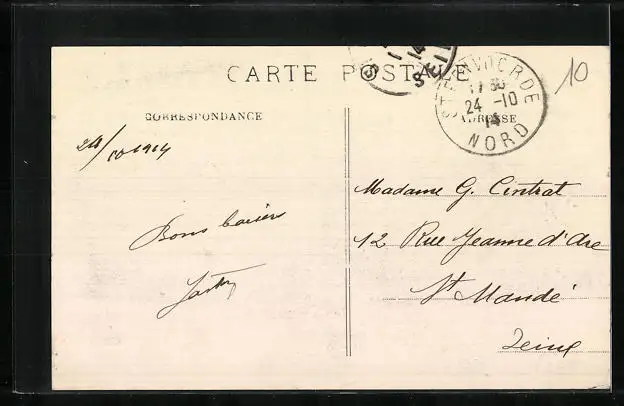 CARTE POSTALE
SEINE
14
STEENVOORDE
17 30
24 -10
14
NORD
10
CORRESPONDANCE
ADRESSE
24/10 1914
Bons baisers
Madame G. Contrat
12 Rue Jeanne d'Arc
St Mandé
Seine